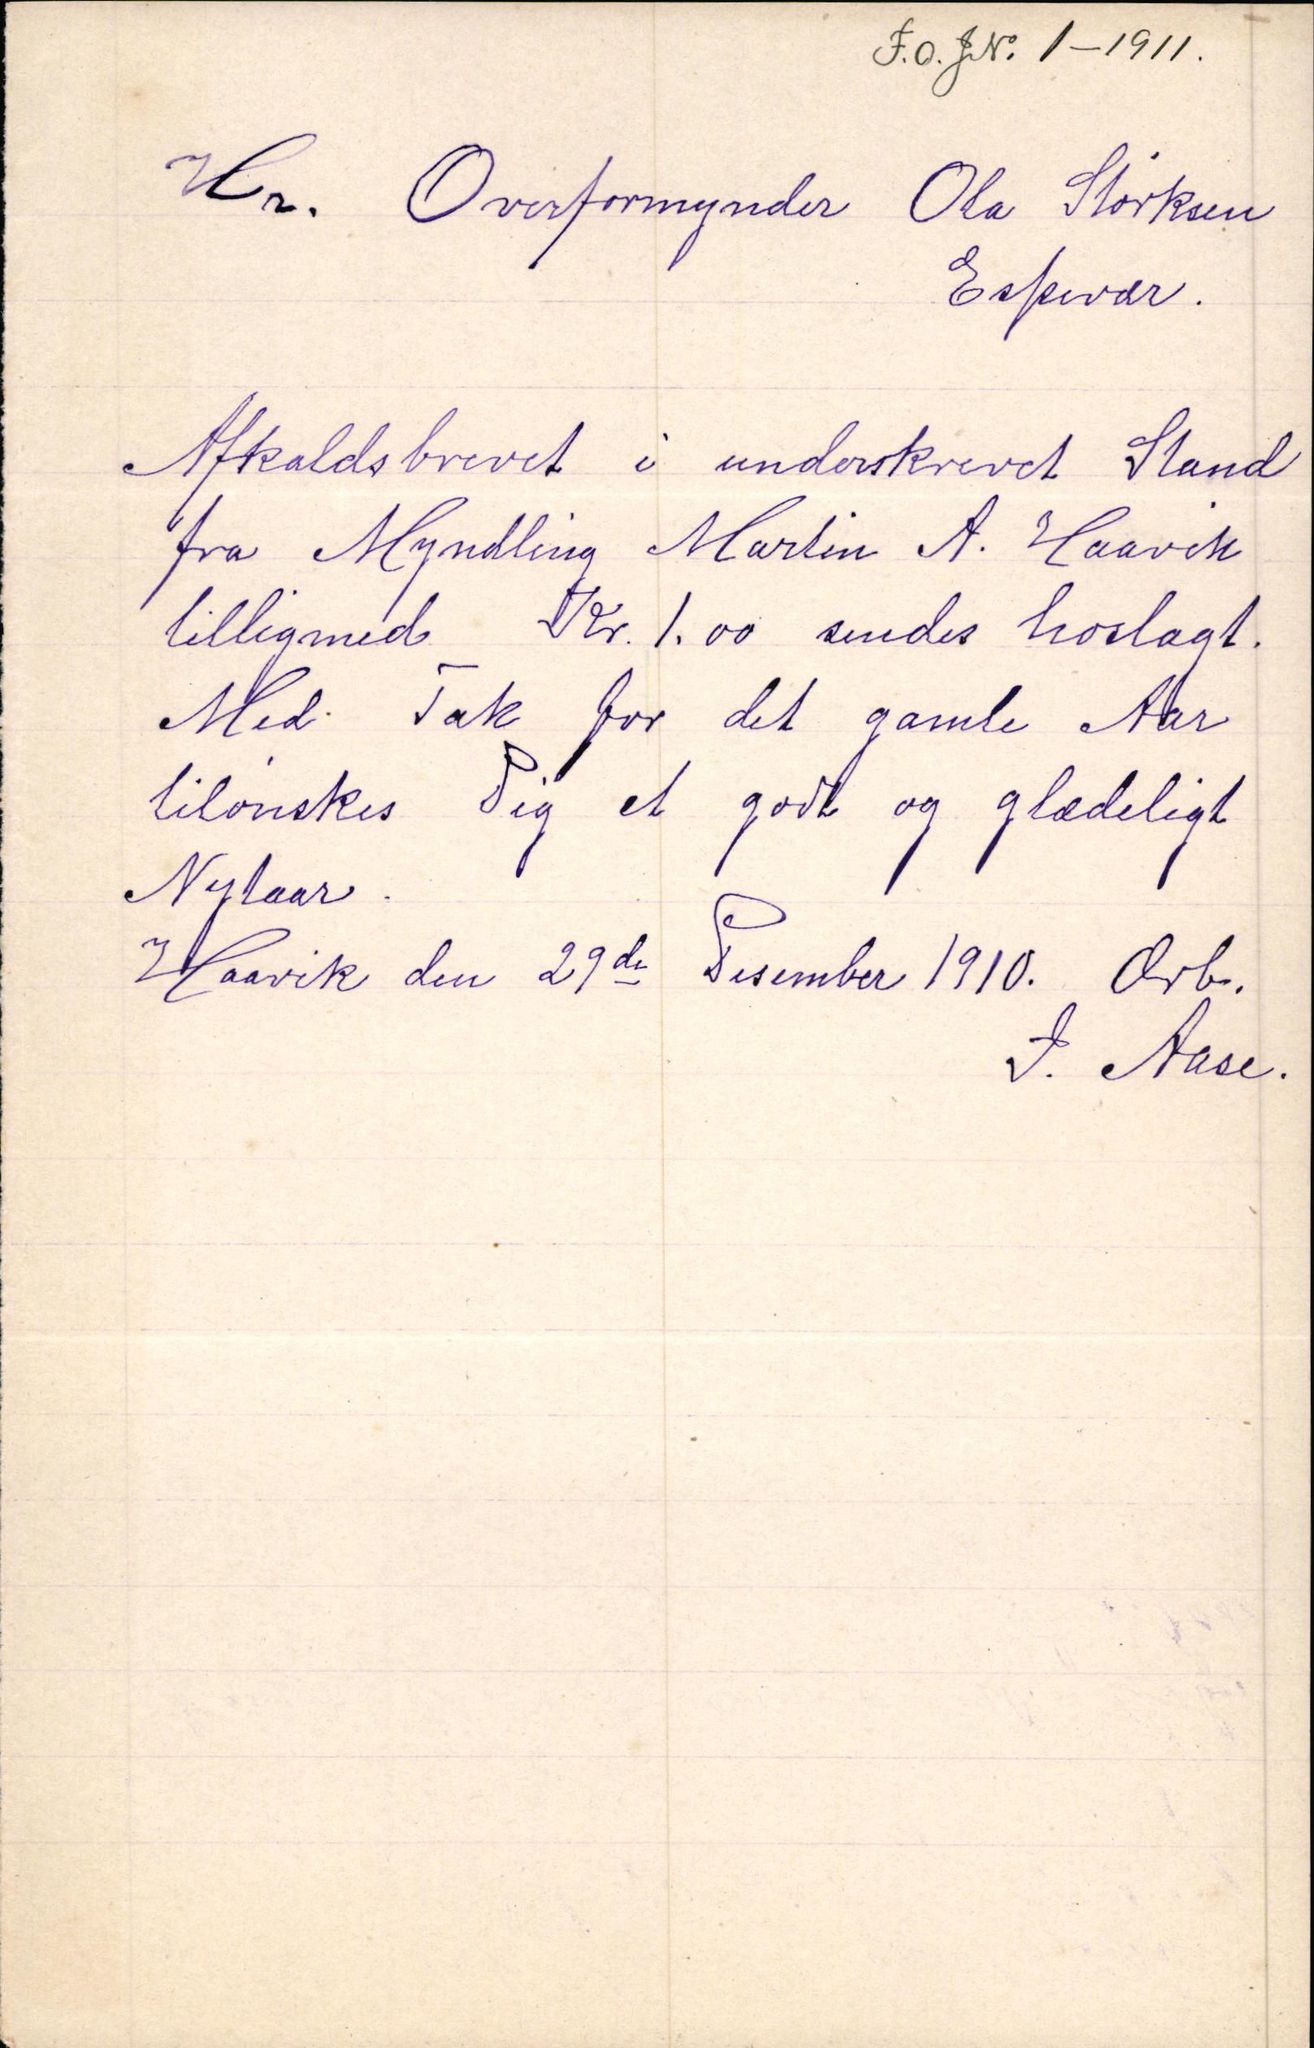 F.O.JNo. 1-1911.
Hr. Overformynder Ola Størksen
Espevær.
Afkaldsbrevet i underskrevet Stand
fra Myndling Martin A. Haavik
tilligmed Kr. 1.00 sendes hoslagt.
Med Tak for det gamle Aar
tilønskes Dig et godt og glædeligt
Nytaar.
Haavik den 29de Desember 1910. Ærb.
J. Aase.